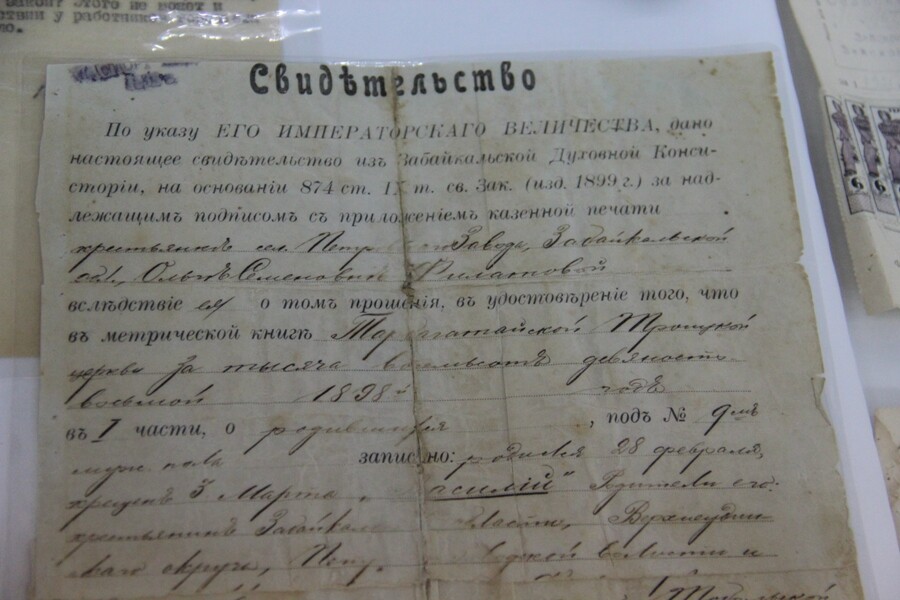 закон этого не может и
ствии у работников
ло.
Свидѣтельство
По указу ЕГО ИМПЕРАТОРСКАГО ВЕЛИЧЕСТВА, дано
настоящее свидѣтельство изъ Забайкальской ДуховнойКонси-
сторіи, на основаніи 874 ст. IX т. св. Зак. (изд. 1899 г.) за над-
лежащимъ подписомъ съ приложеніемъ казенной печати
крестьянкѣ сел. Петр Завода, Забайкальской
обл., Ольгѣ Семеновнѣ Филатовой
вслѣдствіе ея о томъ прошенія, въ удостовѣреніе того, что
въ метрической книгѣ Тарбагатайской Троицкой
церкви за тысяча восемьсотъ девяносто
восьмой 1898 годъ
въ I части, о родившихся, подъ № 9мъ
муж. пола записано: родился 28 февраля,
крещенъ 3 Марта „Василій" Родители его:
крестьянинъ Забайкал области, Верхнеудин-
скаго округа, Петр волости и
Тобольской
6
6